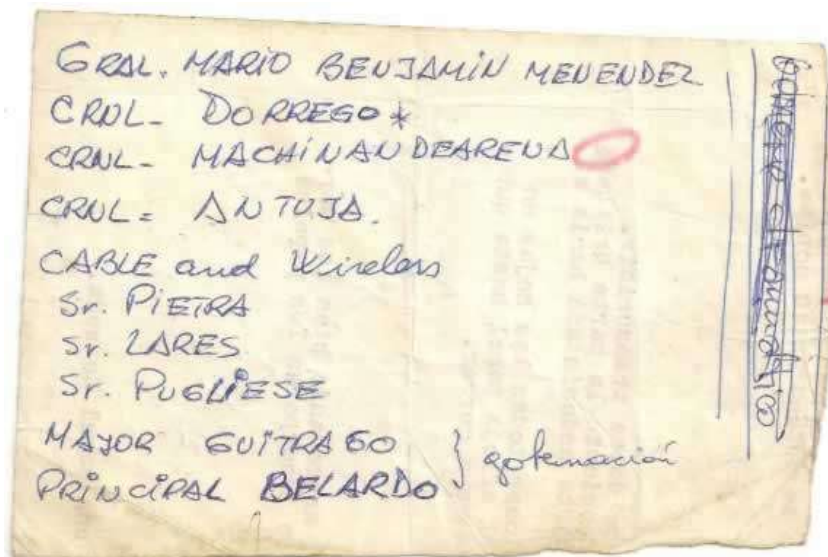 GRAL. MARIO BENJAMIN MENENDEZ
CRNL- DORREGO*
CRNL- MACHINANDEARENA
CRNL= ANTUJA.
CABLE and Wireless
Sr. PIETRA
Sr. LARES
Sr. PUGLIESE
MAYOR GUITRAGO
PRINCIPAL BELARDO } gobernación